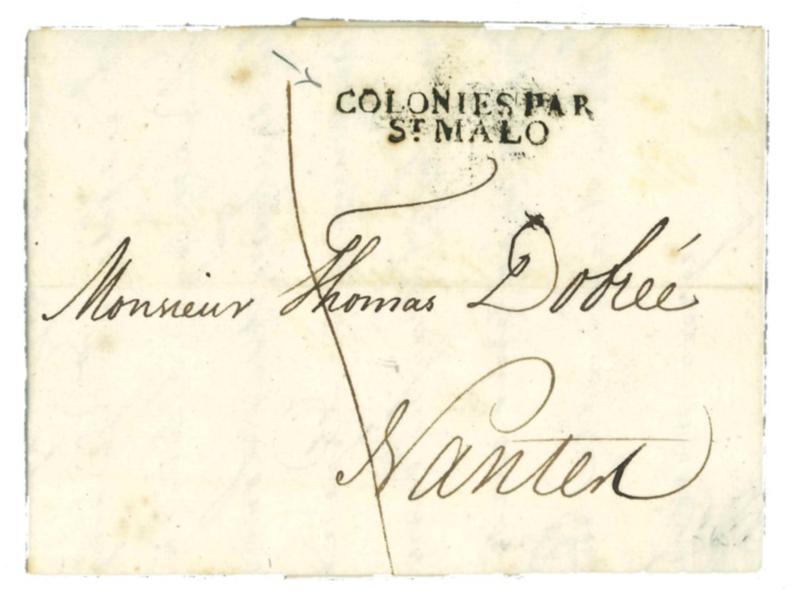 COLONIES PAR
ST MALO
Monsieur Thomas Dobrée
Nantes